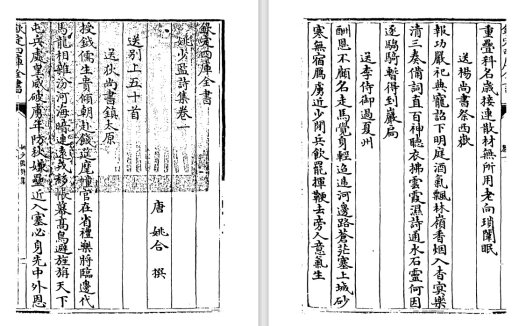 欽定四庫全書
姚少監詩集卷一
唐 姚合 撰
送别上五十首
送狄尚書鎮太原
授鉞儒生貴傾朝赴餞筵麾幢官在省禮樂將臨邊代
馬龍相雜汾河海暗連遠戎移帳幕高鳥避旌旃天下
屯兵處皇威破虜年防狄嫌壘近入塞必身先中外恩
欽定四庫全書
姚少監詩集
重疊科名歲接連散材無所用老向瑣闈眠
送楊尚書祭西嶽
報功嚴祀典寵詔下明庭酒氣飄林嶺香烟入杳冥樂
清三奏備詞直百神聴衣拂雲霞濕詩通水石靈何因
逐騶騎暫得到巖扃
送李侍御過夏州
酬恩不顧名走馬覺身輕迢遞河邊路蒼茫塞上城沙
寒無宿鴈虜近少閒兵飲罷揮鞭去旁人意氣生